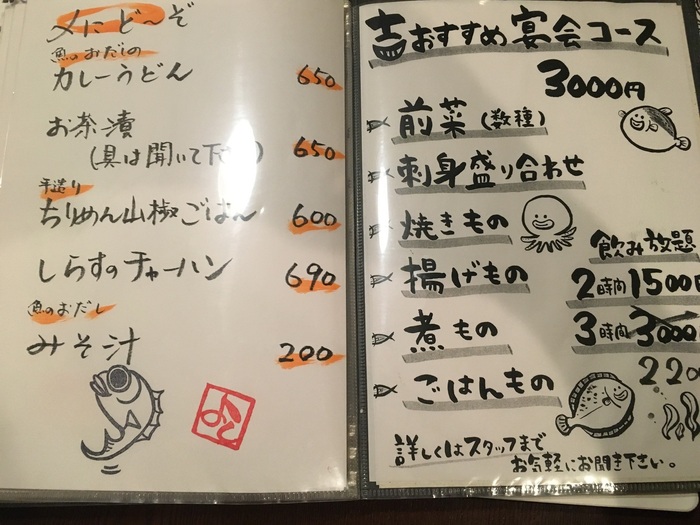 〆にど～ぞ
魚のおだしの
カレーうどん 650
お茶漬
(具は聞いて下 ) 650
手造り
ちりめん山椒ごはん 600
しらすのチャーハン 690
魚のおだし
みそ汁 200
吉おすすめ宴会コース
3000円
前菜(数種)
刺身盛り合わせ
焼きもの
揚げもの
煮もの
ごはんもの
飲み放題
2時間1500円
3時間3000
220
詳しくはスタッフまで
お気軽にお聞き下さい。